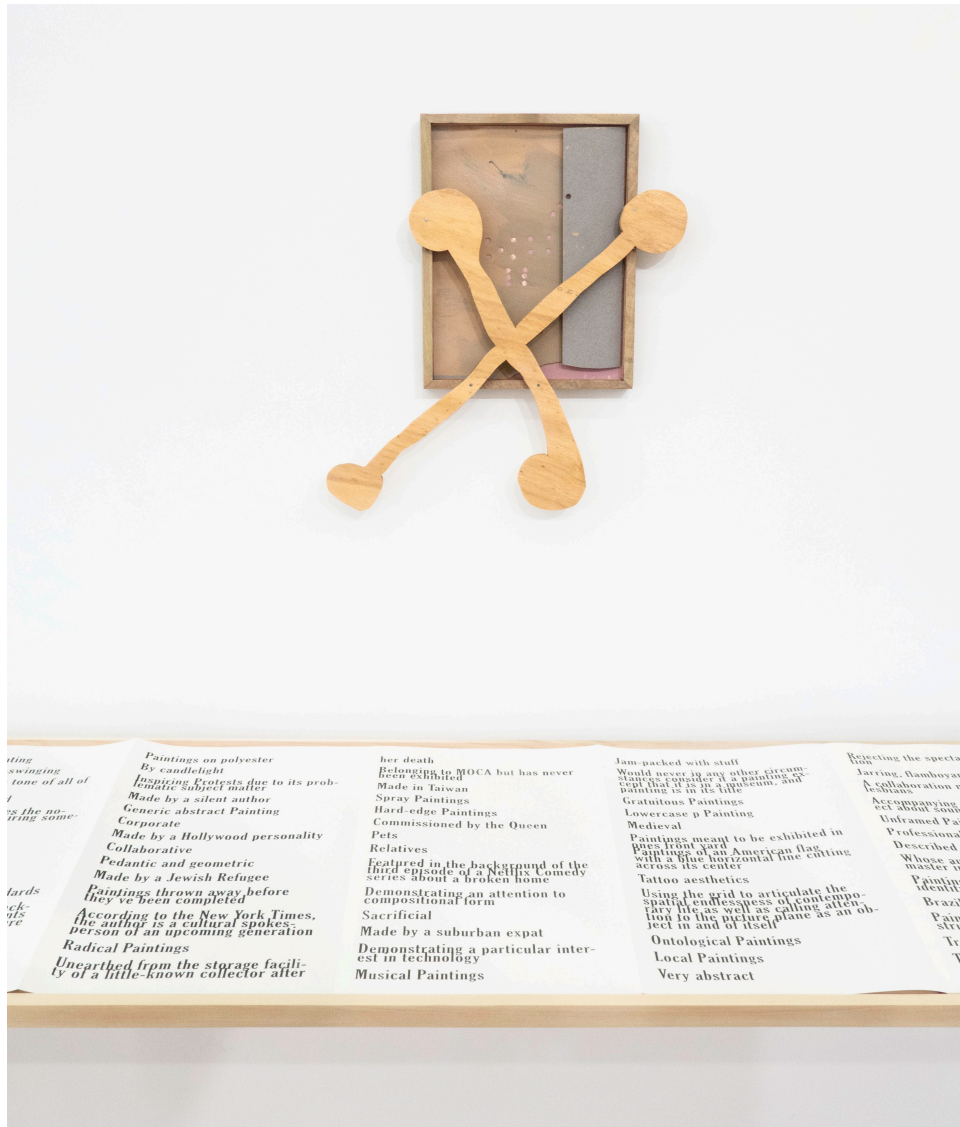 ating
swinging
tone of all of
es the no-
uring some-
dards
ock-
nts
ere
Paintings on polyester
By candlelight
Inspiring Protests due to its prob-
lematic subject matter
Made by a silent author
Generic abstract Painting
Corporate
Made by a Hollywood personality
Collaborative
Pedantic and geometric
Made by a Jewish Refugee
Paintings thrown away before
they've been completed
According to the New York Times,
the author is a cultural spokes-
person of an upcoming generation
Radical Paintings
Unearthed from the storage facili-
ty of a little-known collector after
her death
Belonging to MOCA but has never
been exhibited
Made in Taiwan
Spray Paintings
Hard-edge Paintings
Commissioned by the Queen
Pets
Relatives
Featured in the background of the
third episode of a Netflix Comedy
series about a broken home
Demonstrating an attention to
compositional form
Sacrificial
Made by a suburban expat
Demonstrating a particular inter-
est in technology
Musical Paintings
Jam-packed with stuff
Would never in any other circum-
stances consider it a painting ex-
cept that it is in a museum, and
painting is in its title
Gratuitous Paintings
Lowercase p Painting
Medieval
Paintings meant to be exhibited in
ones front yard
Paintings of an American flag
with a blue horizontal line cutting
across its center
Tattoo aesthetics
Using the grid to articulate the
spatial endlessness of contempo-
rary life as well as calling atten-
tion to the picture plane as an ob-
ject in and of itself
Ontological Paintings
Local Paintings
Very abstract
Rejecting the specta
Jarring, flamboyan
A collaboration
lesbians
Accompanying
ect about soun
Unframed Pai
Professional
Described
Whose au
master
Painting
identi
Brazi
Pain
stru
Tr
T